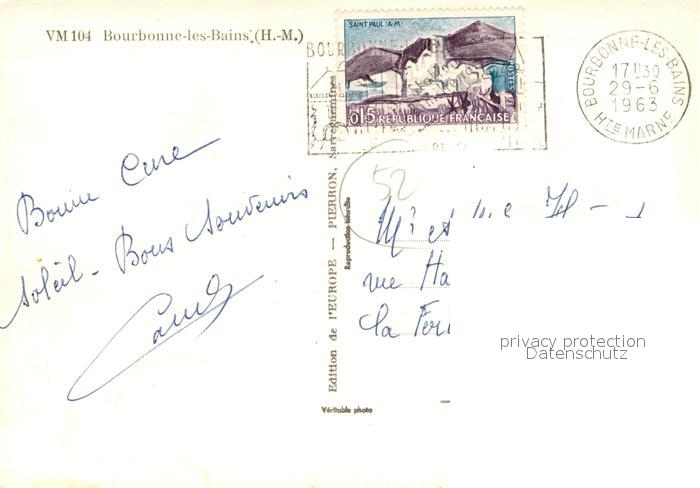 VM 104 Bourbonne-les-Bains (H.-M.)
SAINT PAUL (A.M)
POSTES
0,15 REPUBLIQUE FRANÇAISE
BOURBONNE
BOURBONNE-LES-BAINS
17H30
29-6
1963
HTE MARNE
Bonne Cure
Soleil - Bons Souvenirs
Edition de l'EUROPE — PIERRON, Sarreguemines
Reproduction interdite
Véritable photo
52
Mr et Me H
rue Ha
La Fer
privacy protection
Datenschutz